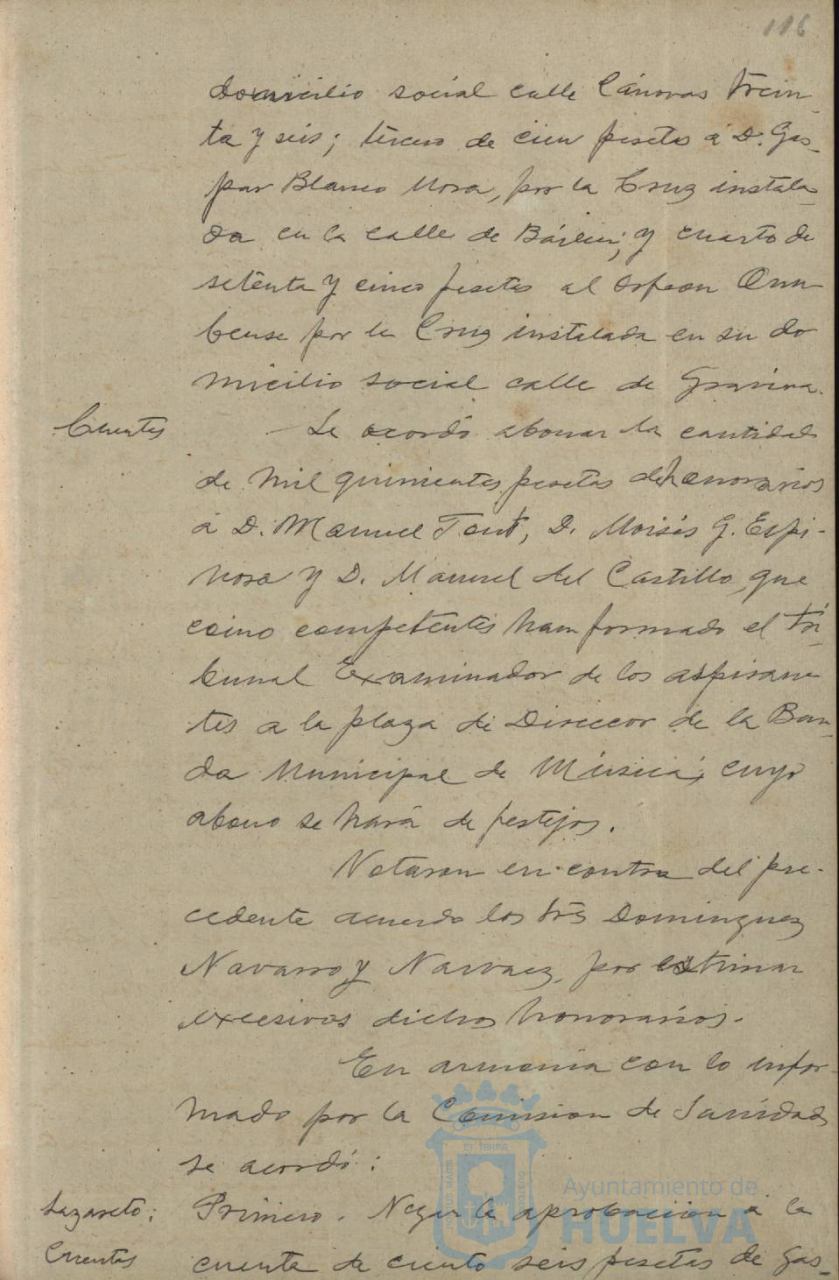 116
domicilio social calle Cánovas trein-
ta y seis; tercero de cien pesetas á D. Gas-
par Blanco Mora, por la Cruz instala-
da en la calle de Bailén; y cuarto de
setenta y cinco pesetas al Orfeon Onu
bense por la Cruz instalada en su do
micilio social calle de Gravina.
Cuentas
Se acordó abonar la cantidad
de mil quinientas pesetas de honorarios
á D. Manuel D. Moisés G. Espi-
nosa y D. Manuel del Castillo, que
como competentes han formado el tri-
bunal Examinador de los aspiran
tes a la plaza de Direccor de la Ban-
da Municipal de Música; cuyo
abono se hará de festejos.
Votaron en contra del pre-
cedente acuerdo los Dominguez
Navarro y Narvaez, por estimar
excesivos dichos honorarios.
En armonia con lo infor-
mado por la Comision de Sanidad
se acordó:
Lazareto;
Cuentas
Primero. Negar la aprobacion á la
cuenta de ciento seis pesetas de gas-
Ayuntamiento de
HUELVA